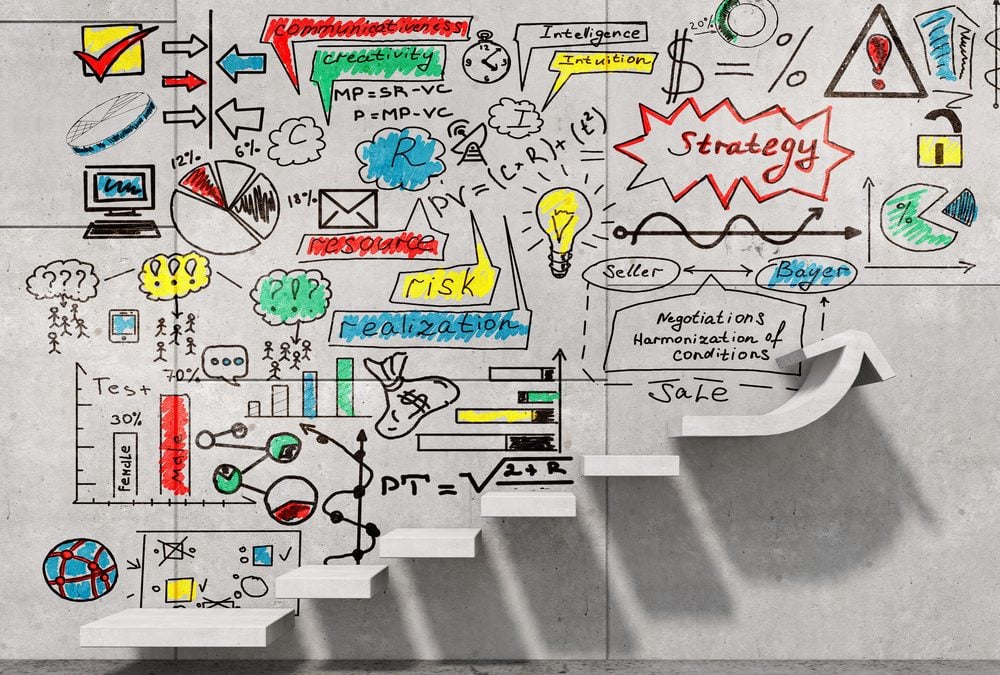 communicativeness
creativity
MP=SR-VC
P=MP-VC
12
Intelligence
Intuition
$ = %
20%
!
Strategy
C
R
I
PV=(C+R)+(t²)
=
12%
6%
18%
%
resource
risk
realization
Seller
Bayer
Negotiations
Harmonization of
conditions
Sale
???
!!!
?!?
...
Test
70%
30%
Female
Male
$
PT=√2+R